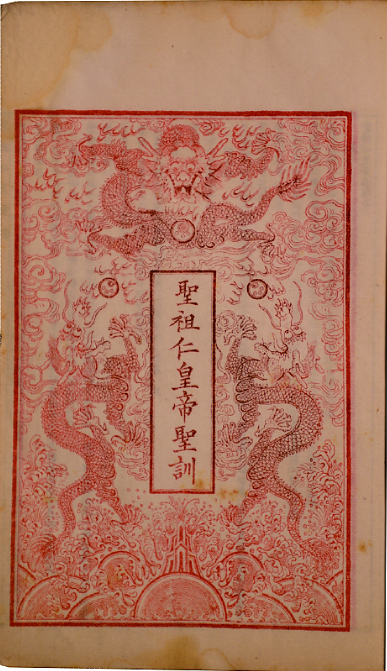 聖祖仁皇帝聖訓